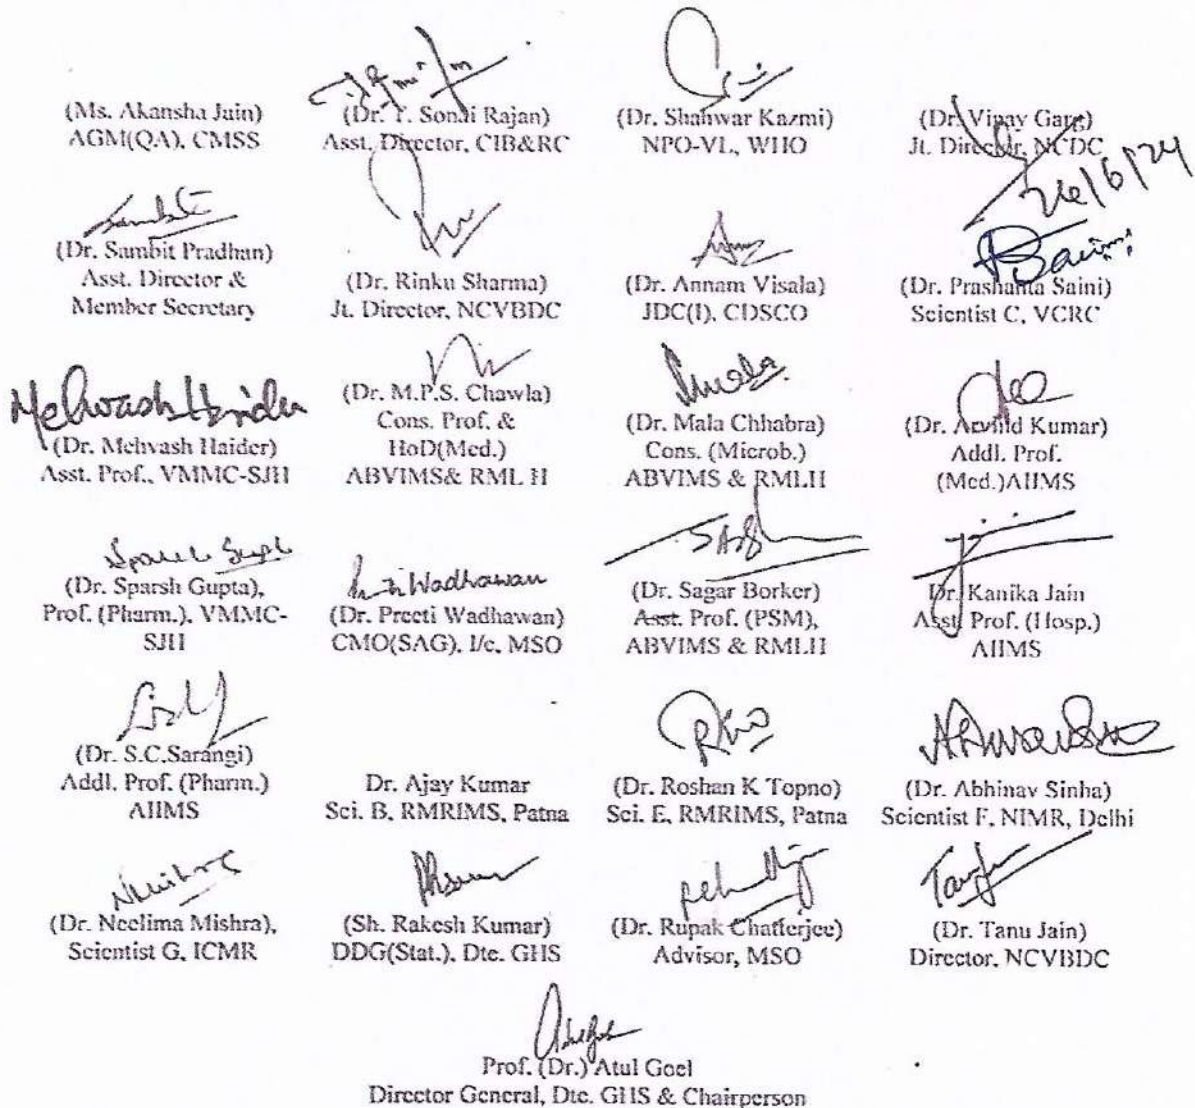 (Ms. Akansha Jain)
AGM(QA), CMSS
(Dr. Y. Sonai Rajan)
Asst. Director, CIB&RC
(Dr. Shahwar Kazmi)
NPO-VL, WHO
(Dr. Vinay Garg)
Jt. Director, NCDC
26/6/24
(Dr. Sambit Pradhan)
Asst. Director &
Member Secretary
(Dr. Rinku Sharma)
Jt. Director, NCVBDC
(Dr. Annam Visala)
JDC(I), CDSCO
(Dr. Prashanta Saini)
Scientist C, VCRC
Mehvash Haider
(Dr. Mehvash Haider)
Asst. Prof., VMMC-SJH
(Dr. M.P.S. Chawla)
Cons. Prof. &
HoD(Med.)
ABVIMS& RML H
(Dr. Mala Chhabra)
Cons. (Microb.)
ABVIMS & RMLH
(Dr. Arvind Kumar)
Addl. Prof.
(Med.)AIIMS
(Dr. Sparsh Gupta),
Prof. (Pharm.), VMMC-
SJH
Wadhawan
(Dr. Preeti Wadhawan)
CMO(SAG), I/c, MSO
(Dr. Sagar Borker)
Asst. Prof. (PSM),
ABVIMS & RMLH
Dr. Kanika Jain
Asst Prof. (Hosp.)
AIIMS
(Dr. S.C.Sarangi)
Addl. Prof. (Pharm.)
AIIMS
Dr. Ajay Kumar
Sci. B, RMRIMS, Patna
(Dr. Roshan K Topno)
Sci. E, RMRIMS, Patna
(Dr. Abhinav Sinha)
Scientist F, NIMR, Delhi
(Dr. Neelima Mishra),
Scientist G, ICMR
(Sh. Rakesh Kumar)
DDG(Stat.), Dte. GHS
(Dr. Rupak Chatterjee)
Advisor, MSO
(Dr. Tanu Jain)
Director, NCVBDC
Prof. (Dr.) Atul Goel
Director General, Dte. GHS & Chairperson